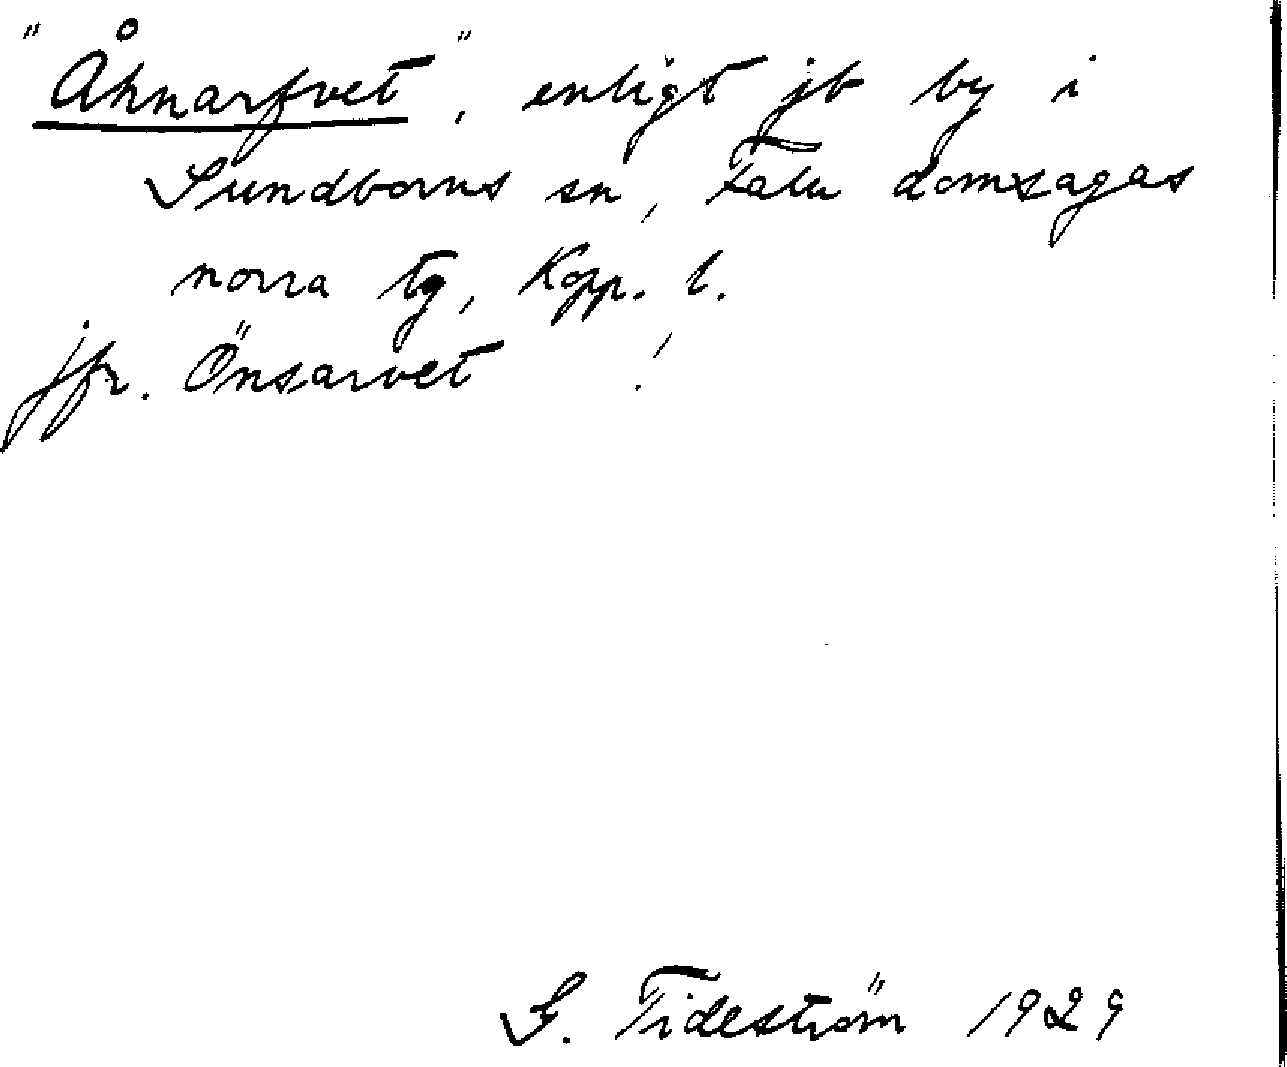 "Åhnarfvet", enligt jb by i
Sundborns sn, Falu domsagas
norra tg, Kopp. l.
jfr. Önsarvet !
S. Tideström 1929